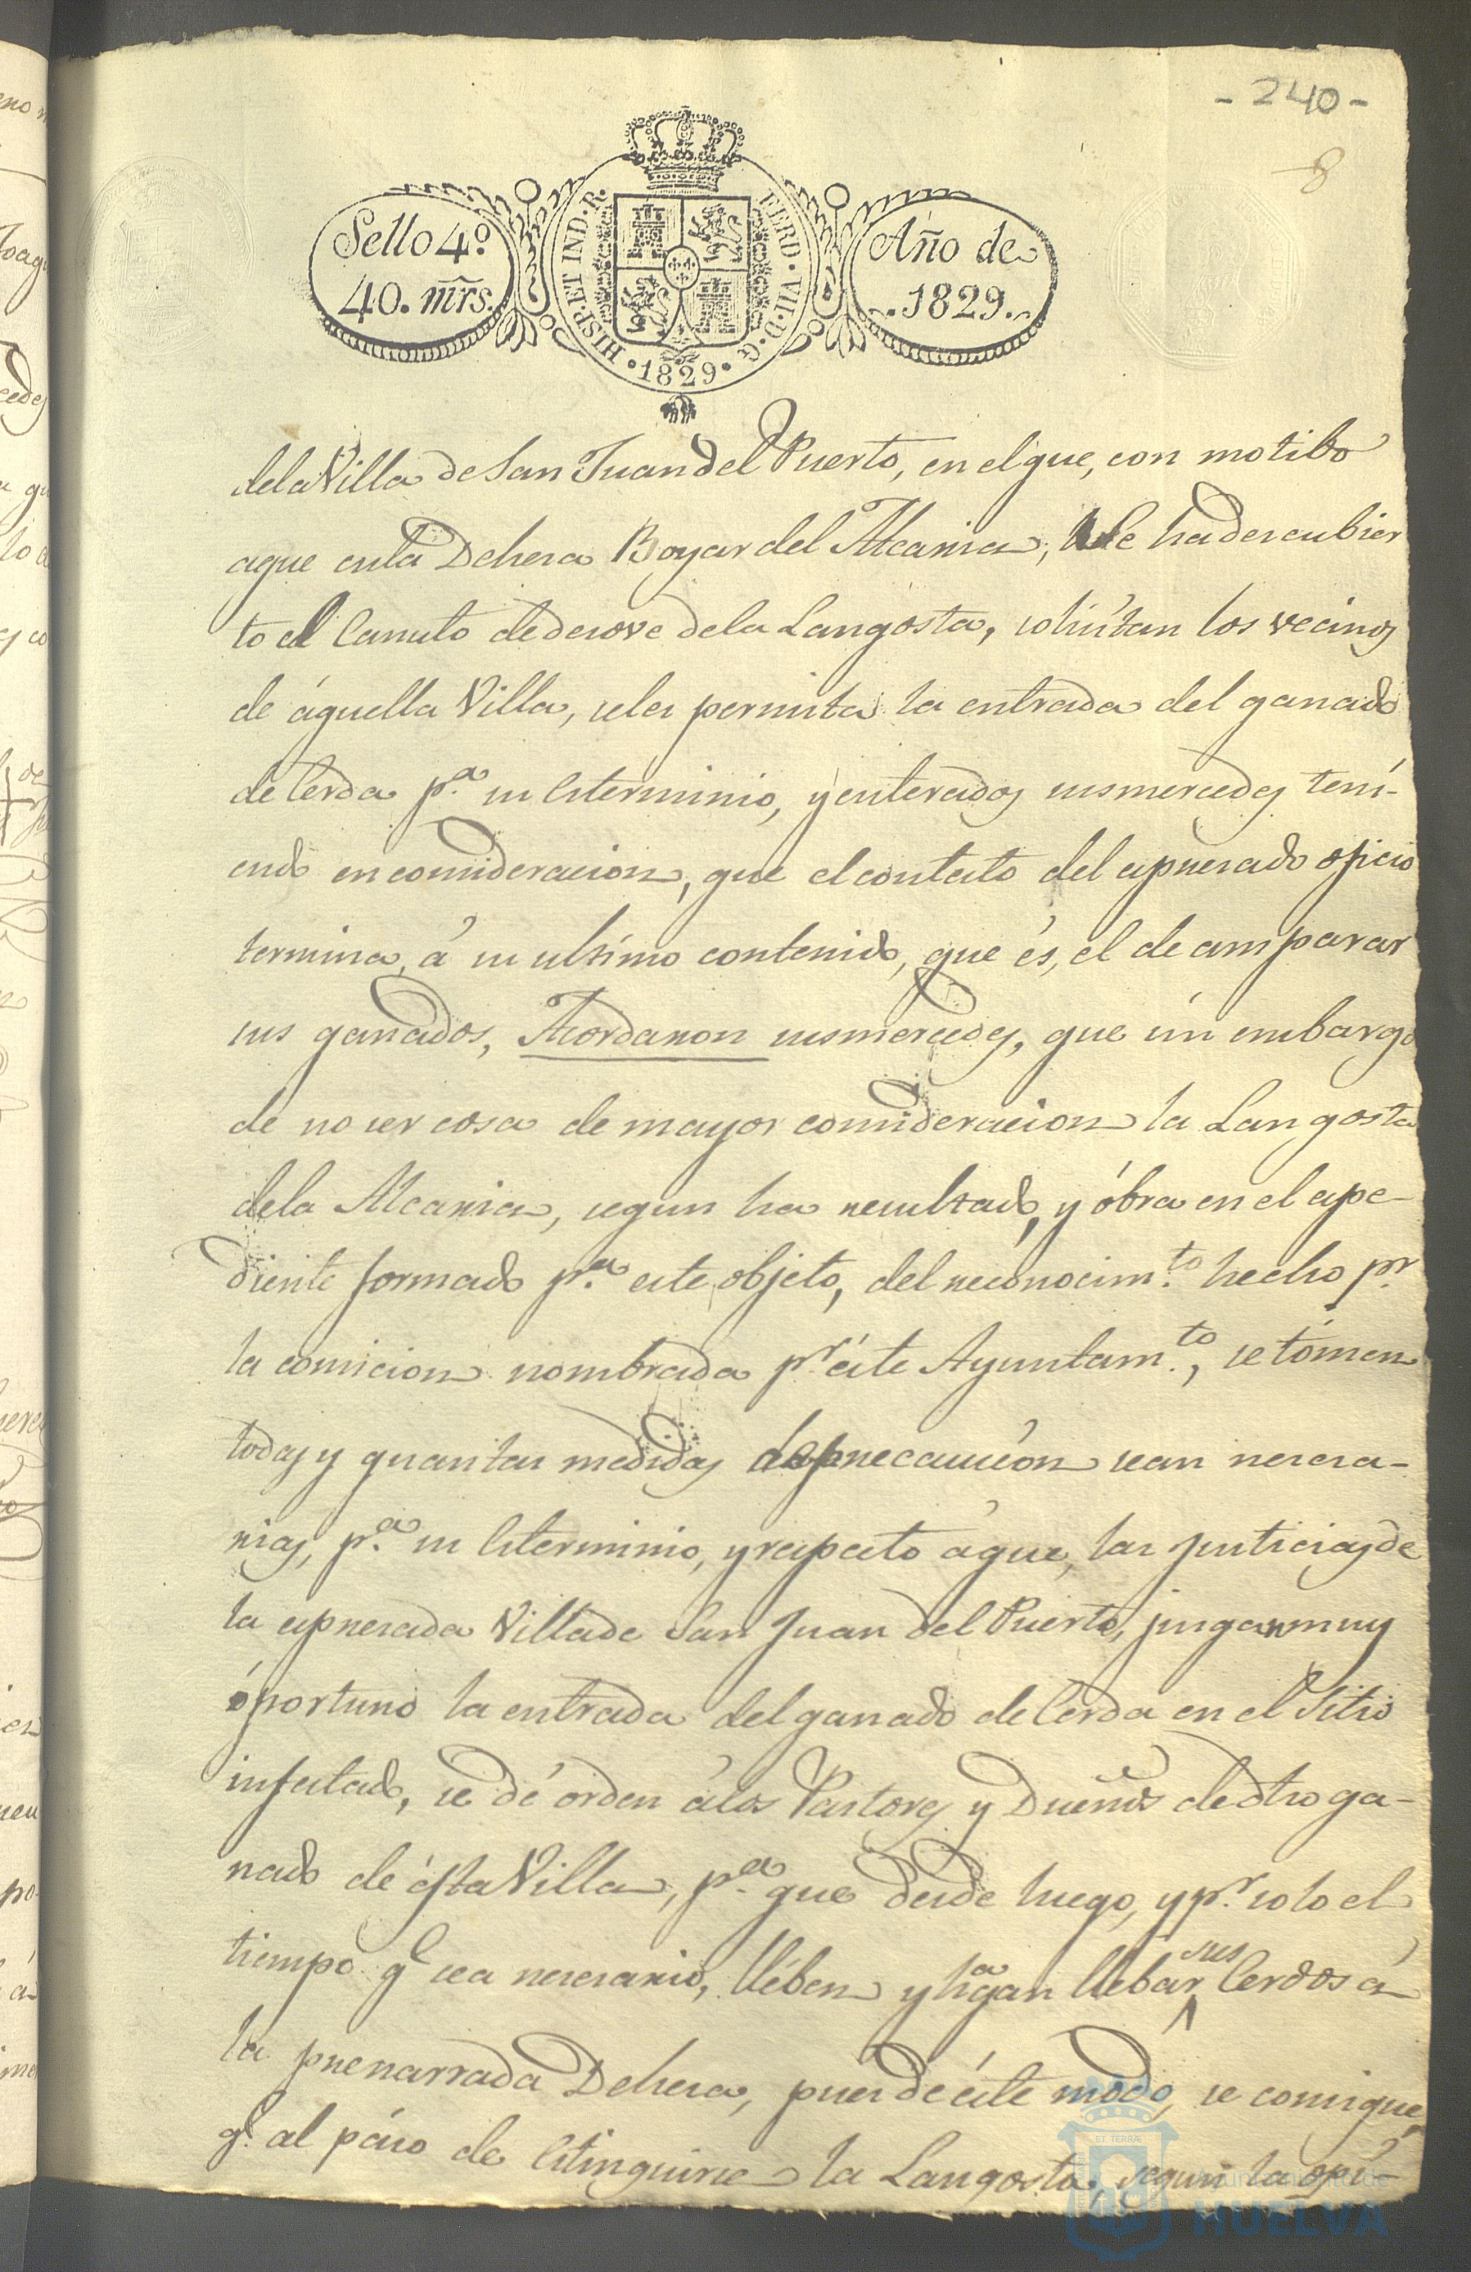 - 240 -
8
Sello 4º
40. mrs.
HISP. ET IND. R. FERD. VII. D. G. 1829
Año de
1829.
dela Villa de San Juan del Puerto, en el que, con motibo
aque enla Dehesa Boyar del Alcaria, se ha descubier
to el Canuto dedesove dela Langosta, solicitan los vecinos
de áquella Villa, seles permita la entrada del ganado
de Cerda pª su esterminio, y enterados susmercedes tení-
endo en consideracion, que el contesto del espresado oficio
termina, á su ultimo contenido, que és, el de amparar
sus ganados, Acordaron susmercedes, que sin embargo
de no ser cosa de mayor consideracion la Langosta
dela Alcaria, segun ha resultado, y óbra en el espe-
diente formado pª este objeto, del reconocimto hecho pr
la comicion nombrada pr éste Ayuntamto, se tómen
todas y quantas medidas de precaucion sean necesa-
rias, pª su esterminio, y respecto áque, las justicias de
la espresada Villa de San Juan del Puerto, jusgan muy
óportuno la entrada del ganado de Cerda en el Sitio
infestado, se dé orden álos Pastores y Dueños de dho ga-
nado de ésta Villa, pª que desde luego, y pr solo el
tiempo q sea necesario, llében y hagan llebar sus Cerdos á
la prenarrada Dehesa, pues de éste modo, se consigue,
q al páso de estinguirse la Langosta, segun la opi-
ET TERRÆ
Ayuntamiento de
HUELVA